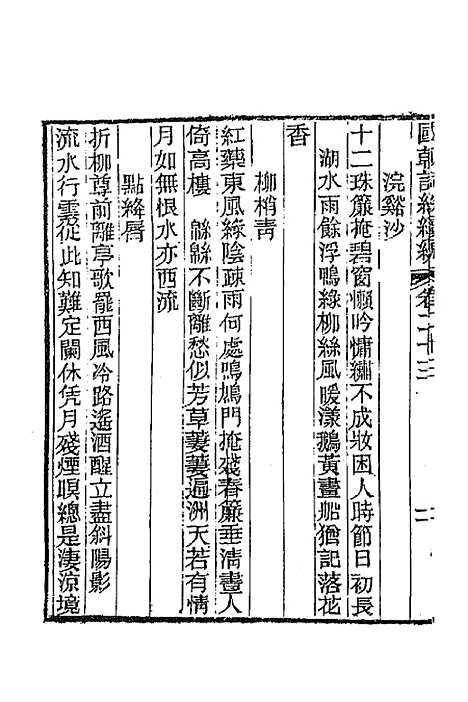 國朝詞綜續編 卷二十三 二
浣谿沙
十二珠簾掩碧窗懶吟慵繡不成妝困人時節日初長
湖水雨餘浮鴨綠柳絲風暖漾鵝黃畫船猶記落花
香
柳梢青
紅藥東風綠陰疎雨何處鳴鳩門掩殘春簾垂清晝人
倚高樓 緜緜不斷離愁似芳草萋萋遍洲天若有情
月如無恨水亦西流
點絳脣
折柳尊前離亭歌罷西風冷路遙酒醒立盡斜陽影
流水行雲從此知難定闌休凭月殘煙暝總是淒涼境